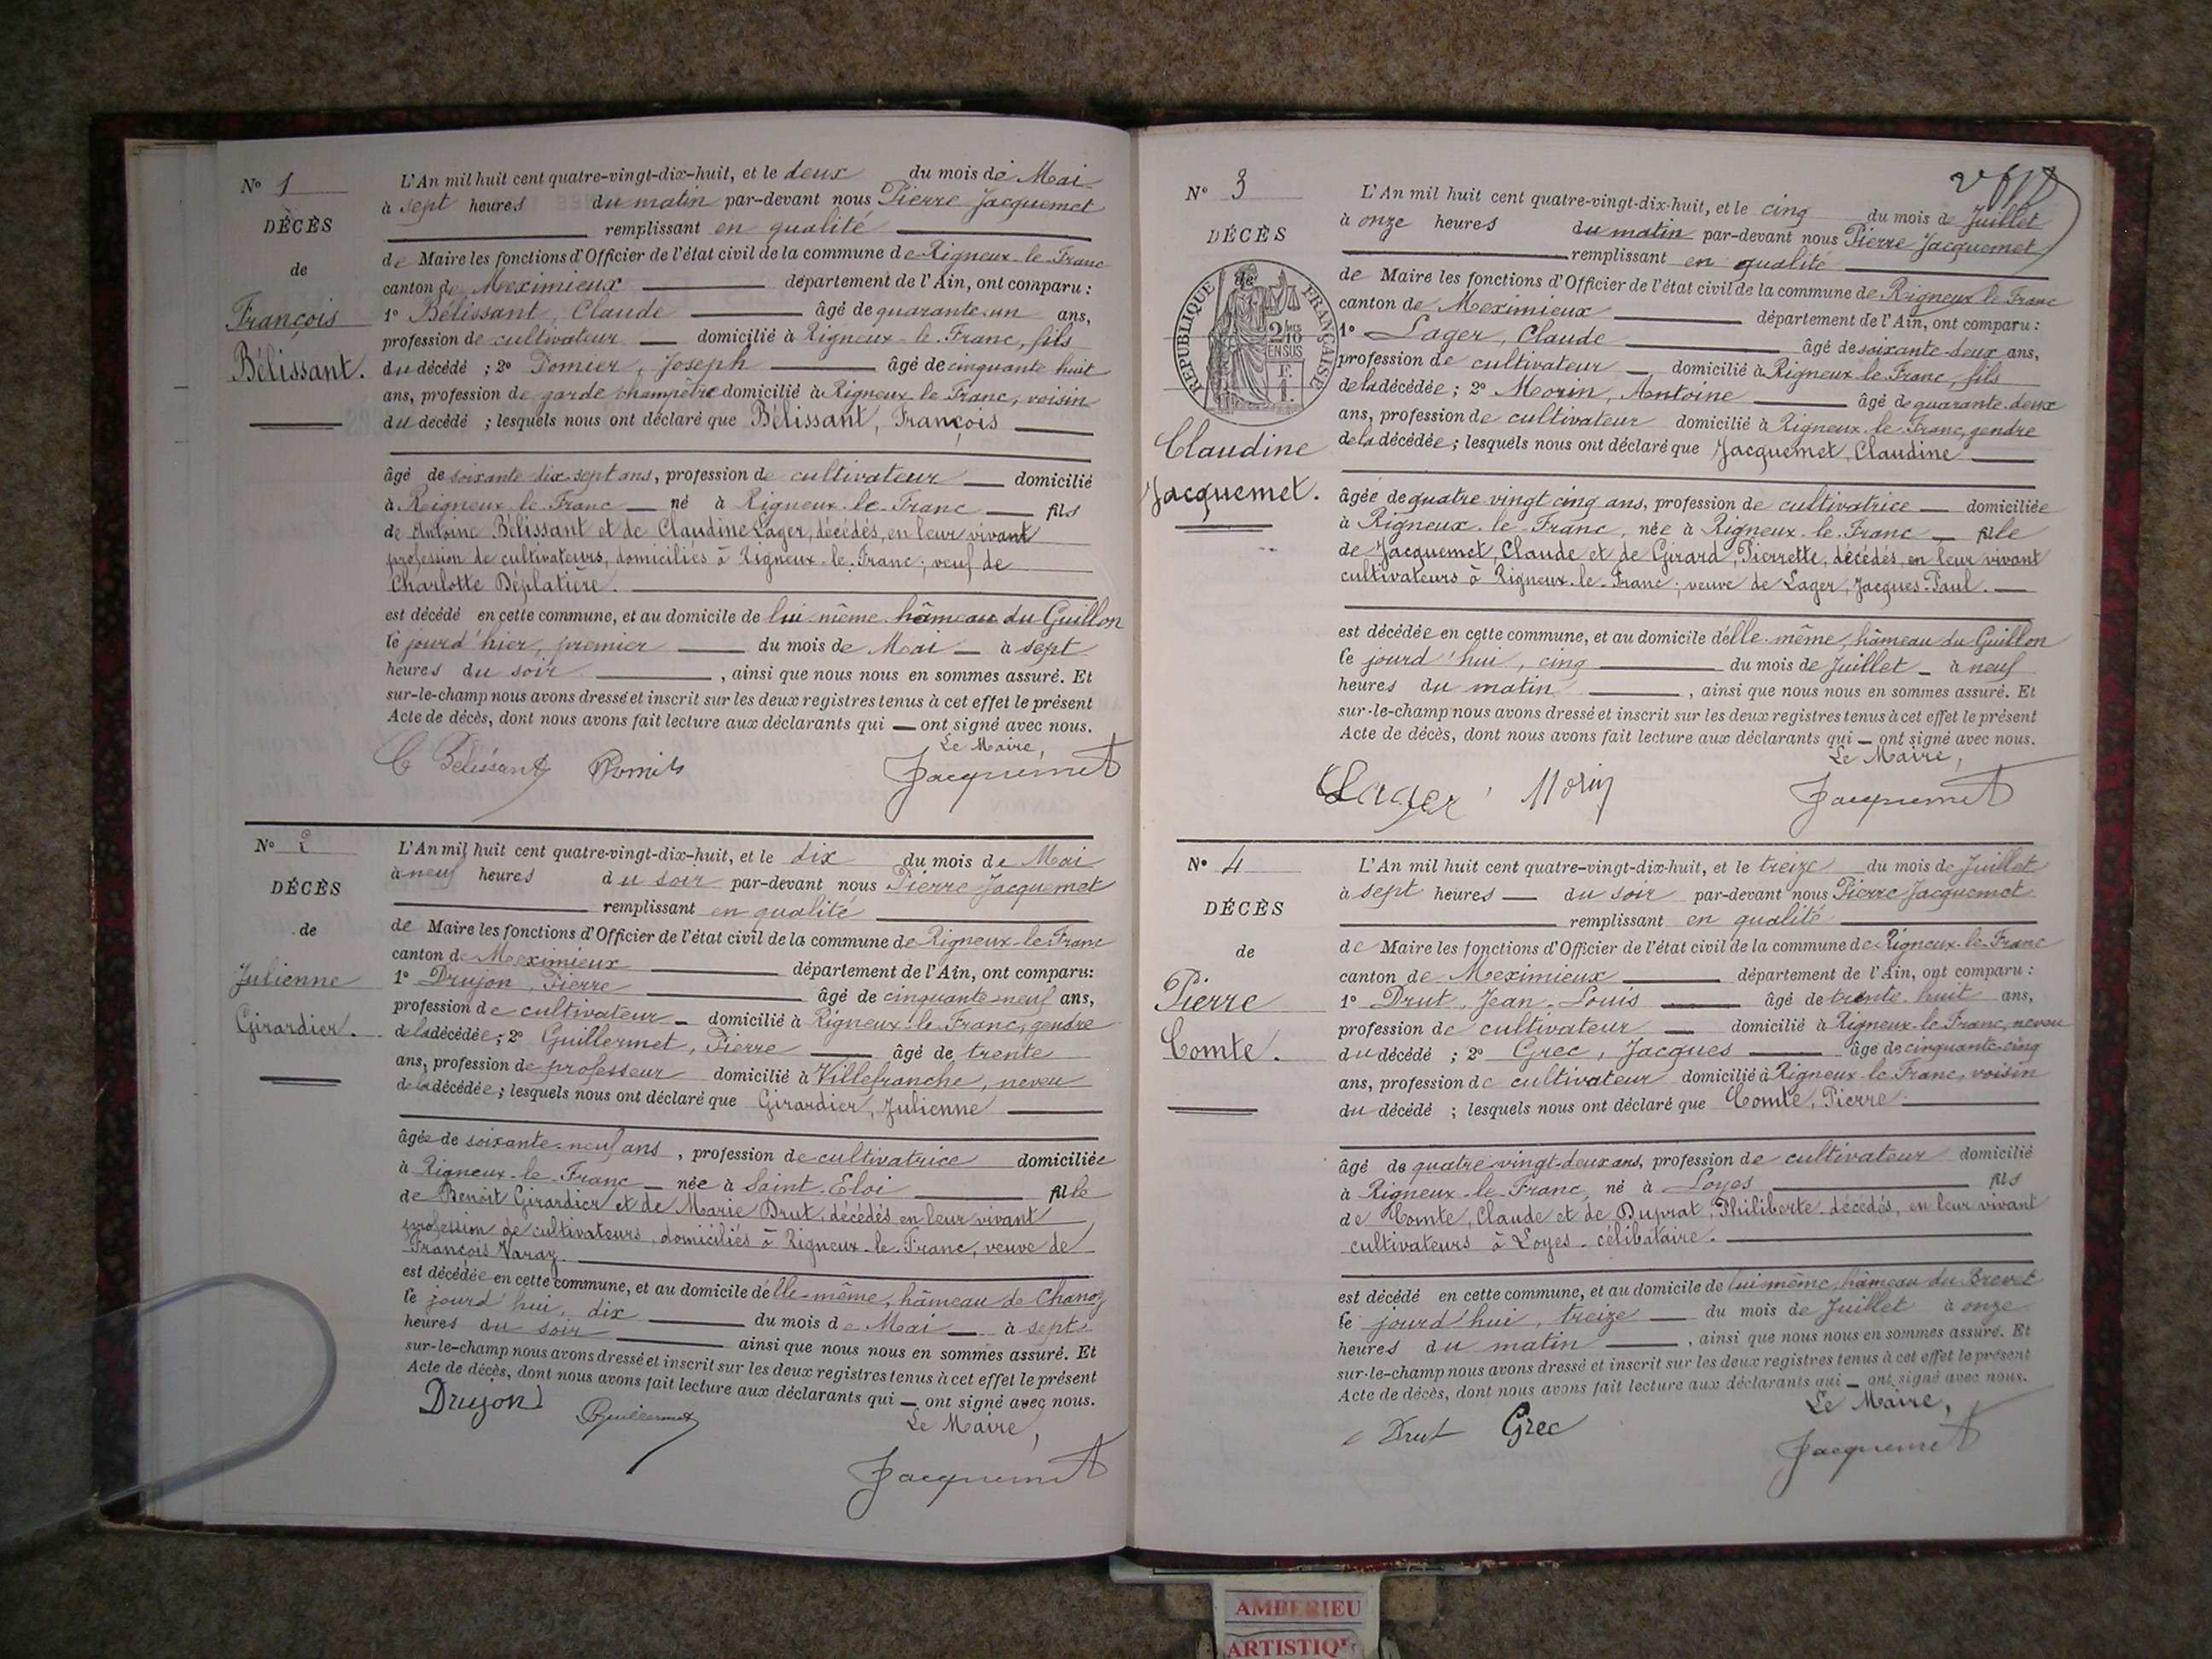 N° 1
DÉCÈS
de
François
Bélissant.
L'An mil huit cent quatre-vingt-dix-huit, et le deux du mois de Mai
à sept heures du matin par-devant nous Pierre Jacquemet
remplissant en qualité
de Maire les fonctions d'Officier de l'état civil de la commune de Rigneux-le-Franc
canton de Meximieux département de l'Ain, ont comparu :
1° Bélissant, Claude âgé de quarante-un ans,
profession de cultivateur domicilié à Rigneux-le-Franc, fils
du décédé ; 2° Pomier, Joseph âgé de cinquante huit
ans, profession de garde champêtre domicilié à Rigneux-le-Franc, voisin
du décédé ; lesquels nous ont déclaré que Bélissant, François
âgé de soixante-dix-sept ans, profession de cultivateur domicilié
à Reigneux-le-Franc né à Rigneux-le-Franc fils
de Antoine Bélissant et de Claudine Lager, décédés, en leur vivant
profession de cultivateurs, domiciliés à Rigneux-le-Franc ; veuf de
Charlotte Déplatière.
est décédé en cette commune, et au domicile de lui-même hâmeau du Guillon
le jourd'hier, premier du mois de Mai à sept
heures du soir, ainsi que nous nous en sommes assuré. Et
sur-le-champ nous avons dressé et inscrit sur les deux registres tenus à cet effet le présent
Acte de décès, dont nous avons fait lecture aux déclarants qui ont signé avec nous.
Le Maire,
C Bélissant Jacquemet
N° 2
DÉCÈS
de
Julienne
Girardier.
L'An mil huit cent quatre-vingt-dix-huit, et le dix du mois de Mai
à neuf heures du soir par-devant nous Pierre Jacquemet
remplissant en qualité
de Maire les fonctions d'Officier de l'état civil de la commune de Rigneux-le-Franc
canton de Meximieux département de l'Ain, ont comparu:
1° Drujon, Pierre âgé de cinquante-neuf ans,
profession de cultivateur domicilié à Rigneux-le-Franc, gendre
de la décédée ; 2° Guillermet, Pierre âgé de trente
ans, profession de professeur domicilié à Villefranche, neveu
de la décédée ; lesquels nous ont déclaré que Girardier, Julienne
âgée de soixante-neuf ans, profession de cultivatrice domiciliée
à Rigneux-le-Franc née à Saint-Eloi fille
de Benoît Girardier et de Marie Drut, décédés en leur vivant
profession de cultivateurs, domiciliés à Rigneux-le-Franc, veuve de
François Varay
est décédée en cette commune, et au domicile d'elle-même, hâmeau de Chanoz
le jourd'hui, dix du mois de Mai à sept
heures du soir ainsi que nous nous en sommes assuré. Et
sur-le-champ nous avons dressé et inscrit sur les deux registres tenus à cet effet le présent
Acte de décès, dont nous avons fait lecture aux déclarants qui ont signé avec nous.
Drujon PGuillermet Le Maire,
Jacquemet
N° 3
DÉCÈS
de
RÉPUBLIQUE FRANÇAISE
2/10 EN SUS
Claudine
Jacquemet.
L'An mil huit cent quatre-vingt-dix-huit, et le cinq du mois de Juillet
à onze heures du matin par-devant nous Pierre Jacquemet
remplissant en qualité
de Maire les fonctions d'Officier de l'état civil de la commune de Rigneux le Franc
canton de Meximieux département de l'Ain, ont comparu :
1° Lager, Claude âgé de soixante-deux ans,
profession de cultivateur domicilié à Rigneux-le-Franc, fils
de la décédée ; 2° Morin, Antoine âgé de quarante-deux
ans, profession de cultivateur domicilié à Rigneux-le-Franc, gendre
de la décédée ; lesquels nous ont déclaré que Jacquemet, Claudine
âgée de quatre vingt cinq ans, profession de cultivatrice domiciliée
à Rigneux-le-Franc, née à Rigneux-le-Franc fille
de Jacquemet, Claude et de Girard, Pierrette, décédés, en leur vivant
cultivateurs à Rigneux-le-Franc ; veuve de Lager, Jacques-Paul.
est décédée en cette commune, et au domicile d'elle-même, hâmeau du Guillon
le jourd'hui, cinq du mois de Juillet à neuf
heures du matin, ainsi que nous nous en sommes assuré. Et
sur-le-champ nous avons dressé et inscrit sur les deux registres tenus à cet effet le présent
Acte de décès, dont nous avons fait lecture aux déclarants qui ont signé avec nous.
Le Maire,
CLager Morin Jacquemet
N° 4
DÉCÈS
de
Pierre
Comte.
L'An mil huit cent quatre-vingt-dix-huit, et le treize du mois de Juillet
à sept heures du soir par-devant nous Pierre Jacquemet
remplissant en qualité
de Maire les fonctions d'Officier de l'état civil de la commune de Rigneux-le-Franc
canton de Meximieux département de l'Ain, ont comparu :
1° Drut, Jean-Louis âgé de trente-huit ans,
profession de cultivateur domicilié à Rigneux-le-Franc, neveu
du décédé ; 2° Grec, Jacques âgé de cinquante-cinq
ans, profession de cultivateur domicilié à Rigneux-le-Franc, voisin
du décédé ; lesquels nous ont déclaré que Comte, Pierre
âgé de quatre-vingt-deux ans, profession de cultivateur domicilié
à Rigneux-le-Franc, né à Loyes fils
de Comte, Claude et de Duprat, Philiberte décédés, en leur vivant
cultivateurs à Loyes. célibataire.
est décédé en cette commune, et au domicile de lui même, hâmeau du Brevet
le jourd'hui, treize du mois de Juillet à onze
heures du matin, ainsi que nous nous en sommes assuré. Et
sur-le-champ nous avons dressé et inscrit sur les deux registres tenus à cet effet le présent
Acte de décès, dont nous avons fait lecture aux déclarants qui ont signé avec nous.
Le Maire,
Drut Grec Jacquemet
AMBERIEU
ARTISTIQUE